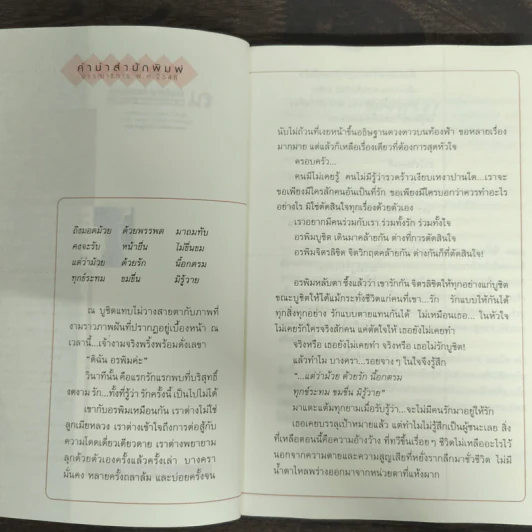 คำนำสำนักพิมพ์
ถึงมอดม้วย ด้วยพรรพต มาถมทับ
คงจะรับ หน้ายืน ไม่ขื่นขม
แต่ว่าม้วย ด้วยรัก นี้อกตรม
ทุกข์ระทม ขมขื่น มิรู้วาย
ณ บูชิตแทบไม่วางสายตากับภาพที่
งามราวภาพฝันที่ปรากฏอยู่เบื้องหน้า ณ
เวลานี้...เจ้างามจริงพริ้งพร้อมดั่งเลขา
"ดิฉัน อรพิมค่ะ"
วินาทีนั้น คือแรกรักแรกพบที่บริสุทธิ์
งดงาม รัก...ทั้งที่รู้ว่า รักครั้งนี้ เป็นไปไม่ได้
เขากับอรพิมเหมือนกัน เราต่างไม่ใช่
ลูกเมียหลวง เราต่างเข้าใจถึงการต่อสู้กับ
ความโดดเดี่ยวเดียวดาย เราต่างพยายาม
ลุกด้วยตัวเองครั้งแล้วครั้งเล่า บางครา
มั่นคง หลายครั้งถลาล้ม และบ่อยครั้งจน
นับไม่ถ้วนที่เงยหน้าขึ้นอธิษฐานดวงดาวบนท้องฟ้า ขอหลายเรื่อง
มากมาย แต่แล้วก็เหลือเรื่องเดียวที่ต้องการสุดหัวใจ
ครอบครัว...
คนมีไม่เคยรู้ คนไม่มีรู้ว่ารวดร้าวเงียบเหงาปานใด...เราจะ
ขอเพียงมีใครสักคนอันเป็นที่รัก ขอเพียงมีใครบอกว่าควรทำอะไร
อย่างไร มิใช่ตัดสินใจทุกเรื่องด้วยตัวเอง
เราอยากมีคนร่วมกับเรา ร่วมทั้งรัก ร่วมทั้งใจ
อรพิมบูชิต เดินมาคล้ายกัน ต่างที่การตัดสินใจ
อรพิมจิตรลิชิต จิตวิกฤตคล้ายกัน ต่างกันก็ที่ตัดสินใจ!
อรพิมหลับตา ซึ้งแล้วว่า เขารักกัน จิตรลิชิตให้ทุกอย่างแก่บูชิต
ขณะบูชิตให้ได้แม้กระทั่งชีวิตแก่คนที่เขา...รัก รักแบบให้กันได้
ทุกสิ่งทุกอย่าง รักแบบตายแทนกันได้ ไม่เหมือนเธอ... ในหัวใจ
ไม่เคยรักใครจริงสักคน แค่ตัดใจให้ เธอยังไม่เคยทำ
จริงหรือ เธอยังไม่เคยทำ จริงหรือ เธอไม่รักบูชิต!
แล้วทำไม บางครา...รอยจางๆ ในใจจึงรู้สึก
"...แต่ว่าม้วย ด้วยรัก นี้อกตรม
ทุกข์ระทม ขมขื่น มิรู้วาย"
มาแตะแต้มทุกยามเมื่อรับรู้ว่า...จะไม่มีคนรักมาอยู่ให้รัก
เธอเคยบรรลุเป้าหมายแล้ว แต่ทำไมไม่รู้สึกเป็นผู้ชนะเลย สิ่ง
ที่เหลือตอนนี้คือความอ้างว้าง ที่ทวีขึ้นเรื่อยๆ ชีวิตไม่เหลืออะไรไว้
นอกจากความตายและความสูญเสียที่หยั่งรากลึกมาชั่วชีวิต ไม่มี
น้ำตาไหลพร่างออกมาจากหน่วยตาที่แห้งผาก